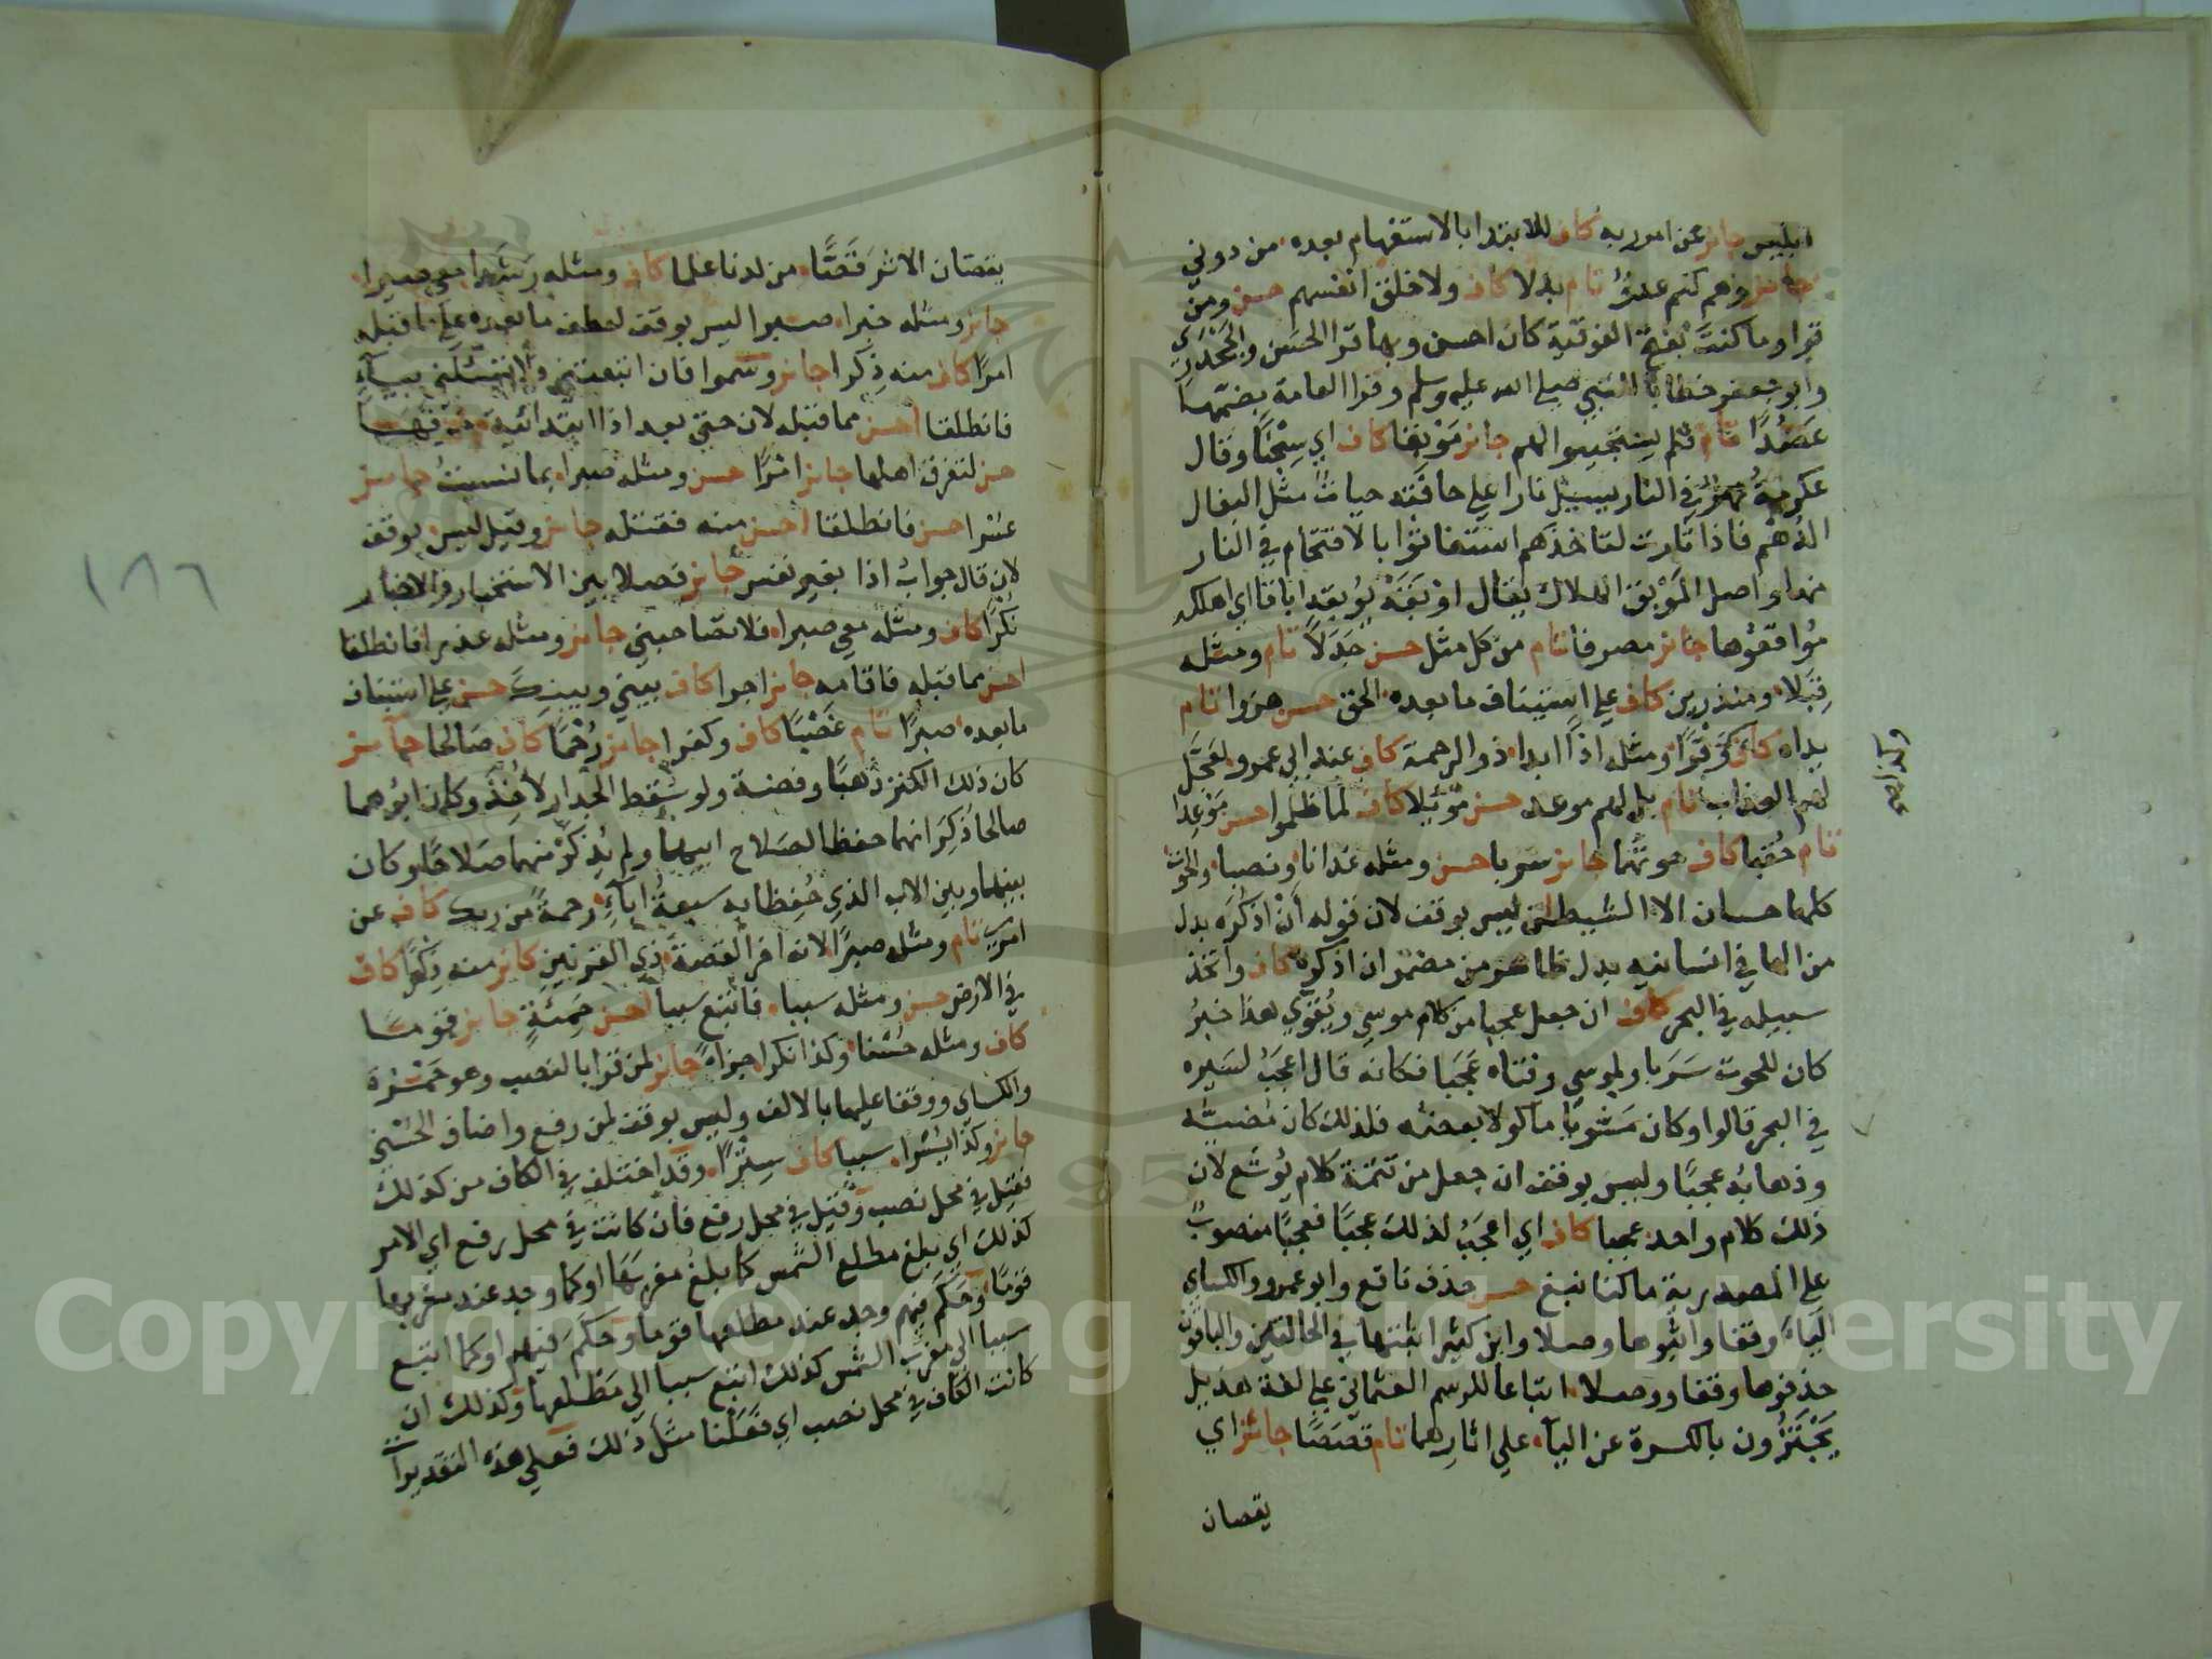 ابليس جائز عن امر ربه كاف للابتدا بالاستفهام بعده من دوني
جائز وهم لكم عدوٌّ تام بدلا كاف ولا خلق انفسهم حسن ومن
قرا وما كنتَ بفتح الفوقية كان احسن وبها قرا الحسن والجحدري
وابو جعفر خطابا للنبي صلى الله عليه وسلم وقرا العامة بضمها
عَضُدًا تام فلم يستجيبوا لهم جائز مَوْبقا كاف اي سِجْنًا وقال
عكرمة نهرٌ في النار يسيل نارا على حافَّته حيات مثل البغال
الدُهْم فاذا ثارت لتاخذهم استغاثوا بالاقتحام في النار
منها واصل المَوْبق الهلاك يقال اوْبَقَهُ يُوبقه ايباقا اي اهلكه
مُواقعُوها جائز مصرفا تام من كل مثل حسن جَدَلاً تام ومثله
قِبَلا ومنذرين كاف على استيناف ما بعده الحق حسن هزوا تام
يداه كاف وَقْرًا ومثله اذًا ابدا ذو الرحمة كاف عند ابي عمرو لعَجَّل
وكذا
لهم العذاب تام بل لهم موعد حسن مَوْئِلا كاف لما ظلموا حسن مَوْعِدا
تام حُقُبا كاف حوتَهُما جائز سَرَبا حسن ومثله غدانا ونصبا والحوت
كلها حسان الا الشيطن ليس بوقف لان قوله أنْ اذكُرَه بدل
من الها في انسانيه بدل ظاهر من مضمر ان اذكره كاف واتخذ
سبيله في البحر كاف ان جعل عجبا من كلام موسى ويُقَوّي هذا خبرُ
كان للحوت سَرَبا ولموسى وفتاه عَجَبا فكانه قال اعجَبُ لسَيره
في البحر قالوا وكان مَشْويًا ماكولا بعضه فلذلك كان مُضيُّه
وذهابُه عجبًا وليس بوقف ان جعل من تتمَّة كلام يُوشَع لان
ذلك كلام واحد عجبا كاف اي اعجَبُ لذلك عجبًا فعجبًا منصوبٌ
على المصدرية ما كنا نبغ حسن حذف نافع وابو عمرو والكساي
الياءَ وقفا واثبتوها وصلا وابن كثير اثبتها في الحالتين والباقون
حذفوها وقفا ووصلا اتباعا للرسم العثماني على لغة هذيل
يَجْتَزُون بالكسرة عن الياء على اثارهما تام قَصَصًا جائز اي
يقصان
يقصان الاثرَ قَصًّا من لدنا علما كاف ومثله رشدا معي صبرا
جائز ومثله خبرا صبرا ليس بوقف لعطف ما بعده على ما قبله
امرًا كاف منه ذِكرا جائز وسموا فان اتبعتني ولا تسئلني بياء
فانطلقا احسن مما قبله لان حتى بعد اذا ابتدائية خرقها
حسن لتغرق اهلها جائز امْرًا حسن ومثله صبرا بما نسيتُ جائز
عسْرا حسن فانطلقا احسن منه فقتله جائز وقيل ليس بوقف
لان قال جوابُ اذا بغير نفس جائز فصلا بين الاستخبار والاخبار
نُكْرًا كاف ومثله معي صبرا فلا تصاحبني جائز ومثله عذرا فانطلقا
احسن مما قبله فاقامه جائز اجرا كاف بيني وبينِك حسن على استيناف
ما بعده صبرًا تام غَصْبًا كاف وكفرا جائز رُحْمًا كاف صالحا جائز
كان ذلك الكنز ذهبًا وفضة ولو سَقَط الجدار لاُخِذَ وكان ابوُهما
صالحا ذُكِرَ انهما حفظا لصَلاح ابيهما ولم يُذكَرْ منهما صَلاحًا وكان
بينهما وبين الاب الذي حُفِظا به سبعةُ اباءٍ رحمةً من ربك كاف عن
امري تام ومثله صبرًا لانه اخر القصة ذي القرنين كائز منه ذِكْرًا كاف
في الارض حسن ومثله سببا فاتبع سببا احسن حَمِئةٍ جائز قوما
كاف ومثله حُسْنا وكذا نكرا جزاءً جائز لمن قرا بالنصب وهو حَمْزة
والكساي ووقفا عليها بالالف وليس بوقف لمن رفع واضاف الحُسْنى
جائز وكذا يُسْرا سببا كاف سِتْرًا وقد اختلف في الكاف من كذلك
فقيل في محل نصب وقيل في محل رفع فان كانت في محل رفع اي الامر
كذلك اي بلغ مطلع الشمس كما بلغ مغربها او كما وجد عند مغربها
قومًا وحَكَم فيهم وجد عند مطلعها قوما وحكَم فيهم او كما اتبع
سببا الى مغرب الشمس كذلك اتبع سببا الى مَطلعها وكذلك ان
كانت الكاف في محل نصب اي فَعَلْنا مثل ذلك فعلى هذه التقديرات
١٨٦